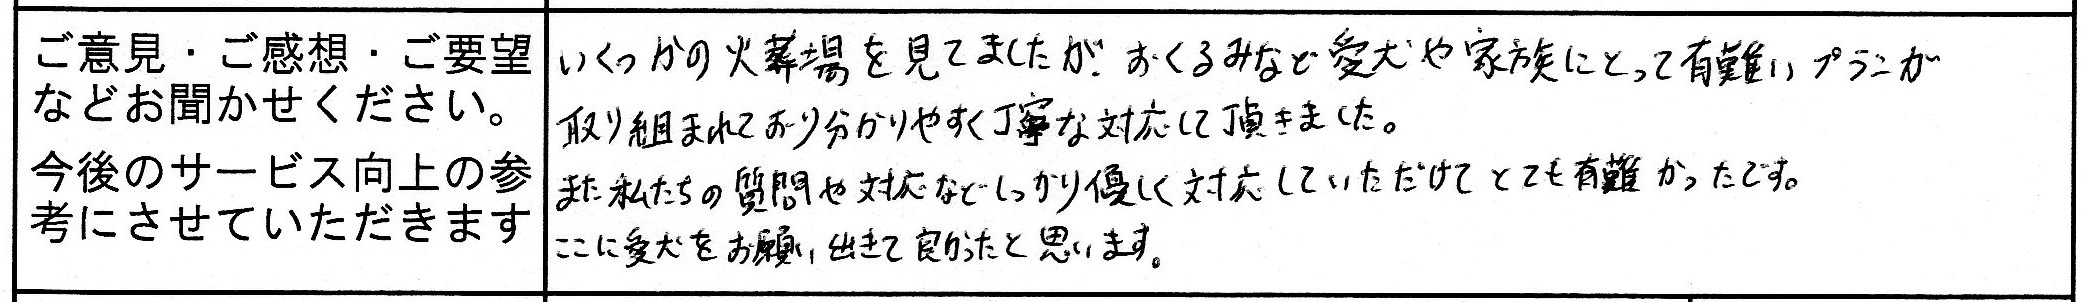 ご意見・ご感想・ご要望
などお聞かせください。
今後のサービス向上の参
考にさせていただきます
いくつかの火葬場を見てましたが、おくるみなど愛犬や家族にとって有難いプランが
取り組まれており分かりやすく丁寧な対応して頂きました。
また私たちの質問や対応などしっかり優しく対応していただけてとても有難かったです。
ここに愛犬をお願い出きて良かったと思います。